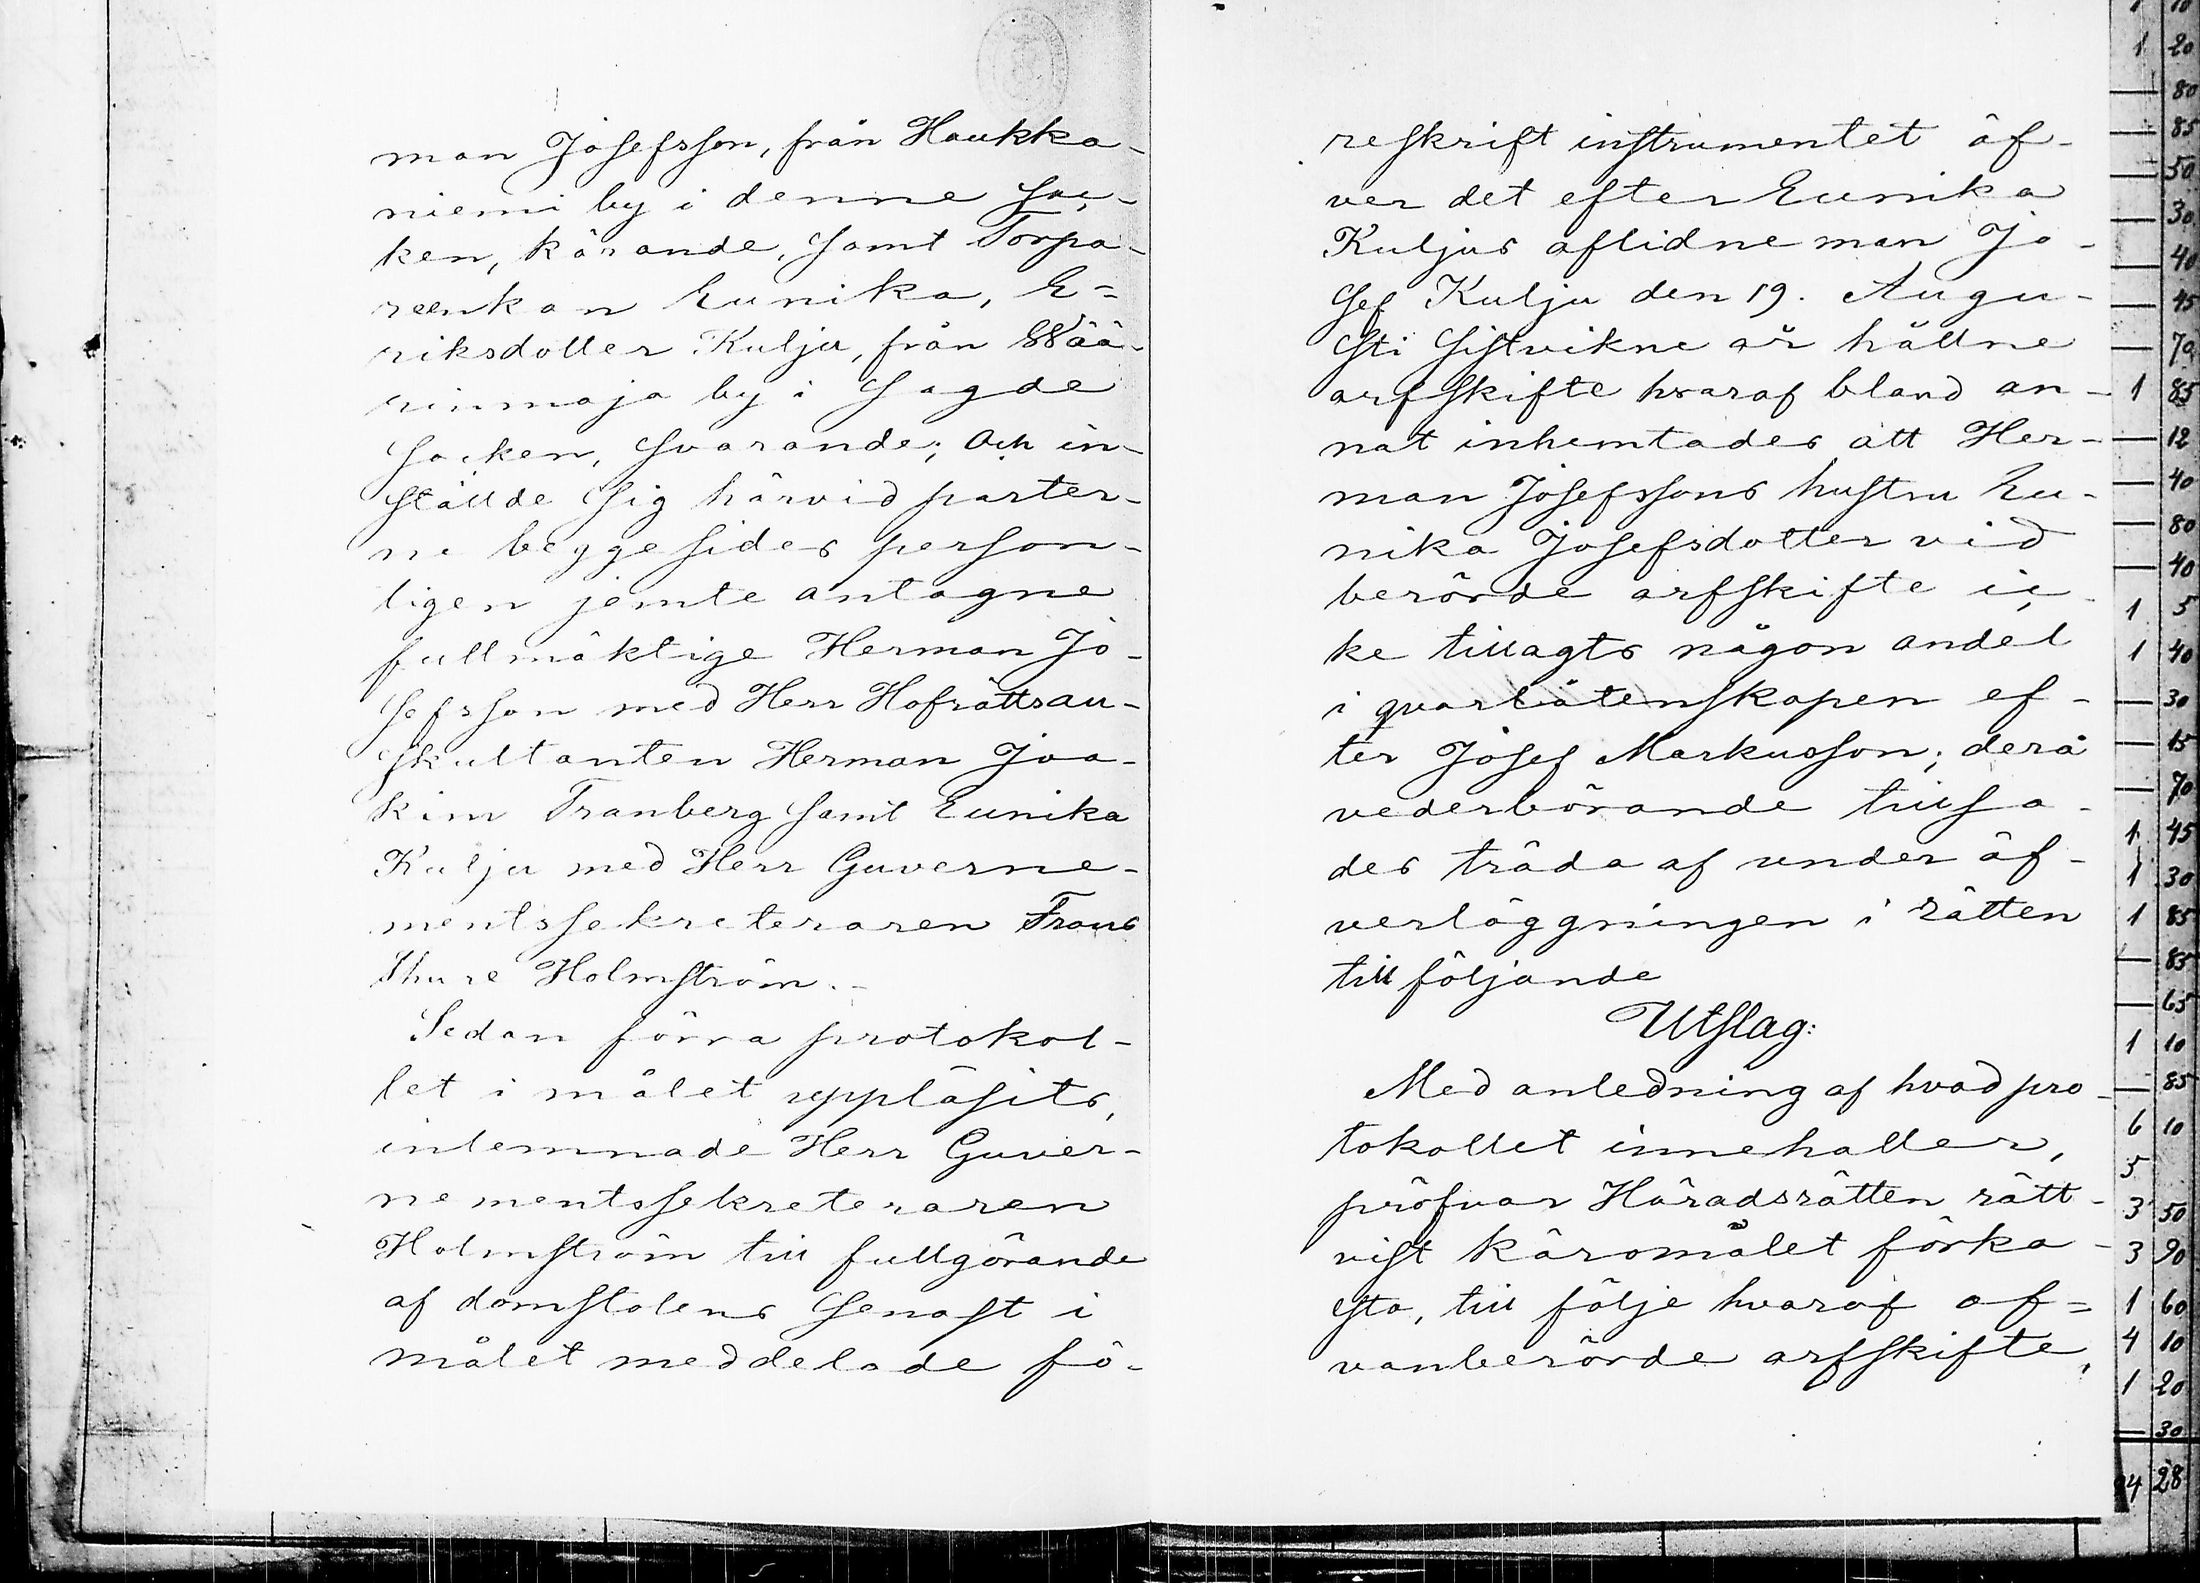 man Josefsson, från Haukka-
niemi by i denne soc-
ken, kärande, samt Torpa-
reenkan Eunika, E-
riksdotter Kulju, från Wää-
rinmaja by i sagde
socken, svarande; och in-
ställde sig härvid parter-
ne beggesides person-
ligen jemte antagne
fullmäktige Herman Jo-
sefsson med Herr Hofrättsau-
skultanten Herman Joa-
kim Tranberg samt Eunika
Kulju med Herr Guverne-
mentssekreteraren Frans
Thure Holmström.-
Sedan förra protokol-
let i målet uppläsits,
inlemnade Herr Guver-
nementssekreteraren
Holmström till fullgörande
af domstolens senast i
målet meddelade fö-
reskrift instrumentet öf-
ver det efter Eunika
Kuljus aflidne man Jo-
sef Kulju den 19. Augu-
sti sistvikne år hållne
arfskifte hvaraf bland an-
nat inhemtades att Her-
man Josefssons hustru Eu-
nika Josefsdotter vid
berörde arfskifte ic-
ke tillagts någon andel
i qvarlåtenskapen ef-
ter Josef Markusson; derå
vederbörande tillsa-
des träda af under öf-
verläggningen i rätten
till följande
Utslag:
Med anledning af hvad pro-
tokollet innehåller,
pröfvar Häradsrätten rätt-
vist käromålet förka-
sta, till följe hvaraf of-
vanberörde arfskifte,
1 20
— 80
— 85
— 50
— 30
— 40
— 45
— 70
1 85
— 12
— 40
— 80
— 40
1 5
1 40
— 30
— 15
— 70
1 45
1 30
1 85
— 85
— 65
1 10
— 85
6 10
5
3 50
3 90
1 60
4 10
1 20
— 30
4 28